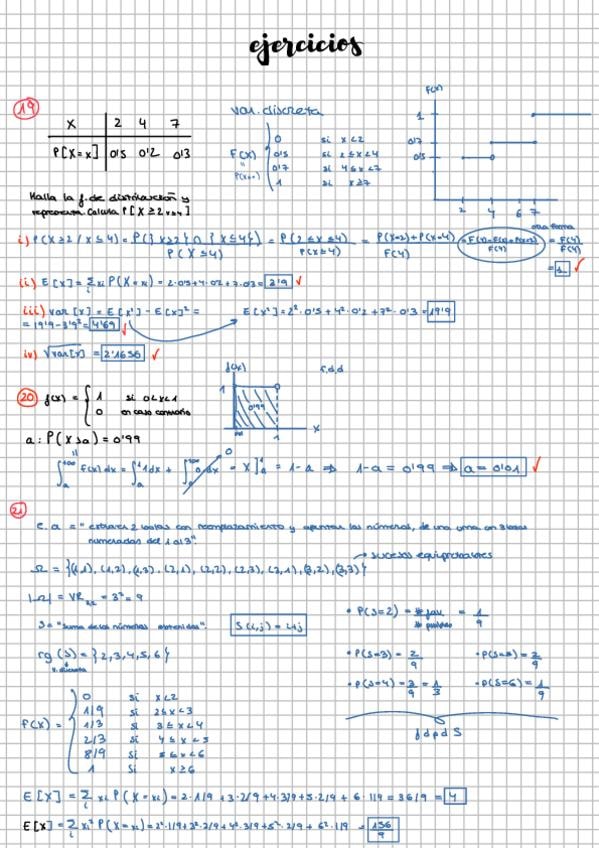 ejercicios
19
X 2 4 7
P[X=x] 0'5 0'2 0'3
var. discreta
F(x)
P(X≤x)
0 si x<2
0'5 si 2≤x<4
0'7 si 4≤x<7
1 si x≥7
F(x)
1
0'7
0'5
2 4 6 7
Halla la f. de distribución y
represéntala. Calcula P[X≥2 / x≤4]
otra forma
i) P(X≥2 / X≤4) = P({X≥2} ∩ {X≤4}) / P(X≤4) = P(2≤X≤4) / P(X≤4) = P(X=2)+P(X=4) / F(4) = F(4) / F(4)
= 1 ✓
ii) E[X] = Σ xi P(X=xi) = 2·0'5+4·0'2+7·0'3 = 3'9 ✓
iii) Var[X] = E[X²] - E[X]² = E[X²] = 2²·0'5 + 4²·0'2 + 7²·0'3 = 19'9
= 19'9-3'9² = 4'69 ✓
iv) √Var[X] = 2'1656 ✓
20 f(x) = { 1 si 0<x<1
0 en caso contrario
f(x)
1
0'99
1 x
a: P(X>a) = 0'99
∫ₐ^+∞ f(x) dx = ∫ₐ¹ 1dx + ∫₁^+∞ 0 dx = x]ₐ¹ = 1-a ⇒ 1-a = 0'99 ⇒ a = 0'01 ✓
0
21
e.a = "extraer 2 bolas con reemplazamiento y apuntar los números, de una urna con 3 bolas
numeradas del 1 al 3".
sucesos equiprobables
Ω = {(1,1), (1,2), (1,3), (2,1), (2,2), (2,3), (3,1), (3,2), (3,3)}
|Ω| = VR₃,₂ = 3² = 9
S = "Suma de los números obtenidos". S(i,j) = i+j
• P(S=2) = # fav / # posibles = 1/9
rg(S) = {2,3,4,5,6}
v. discreta
• P(S=3) = 2/9 • P(S=5) = 2/9
• P(S=4) = 3/9 = 1/3 • P(S=6) = 1/9
f d p d S
F(x) =
0 si x<2
1/9 si 2≤x<3
1/3 si 3≤x<4
2/3 si 4≤x<5
8/9 si 5≤x<6
1 si x≥6
E[X] = Σ xi P(X=xi) = 2·1/9 + 3·2/9 + 4·3/9 + 5·2/9 + 6·1/9 = 36/9 = 4
E[X] = Σ xi² P(X=xi) = 2²·1/9 + 3²·2/9 + 4²·3/9 + 5²·2/9 + 6²·1/9 = 156/9